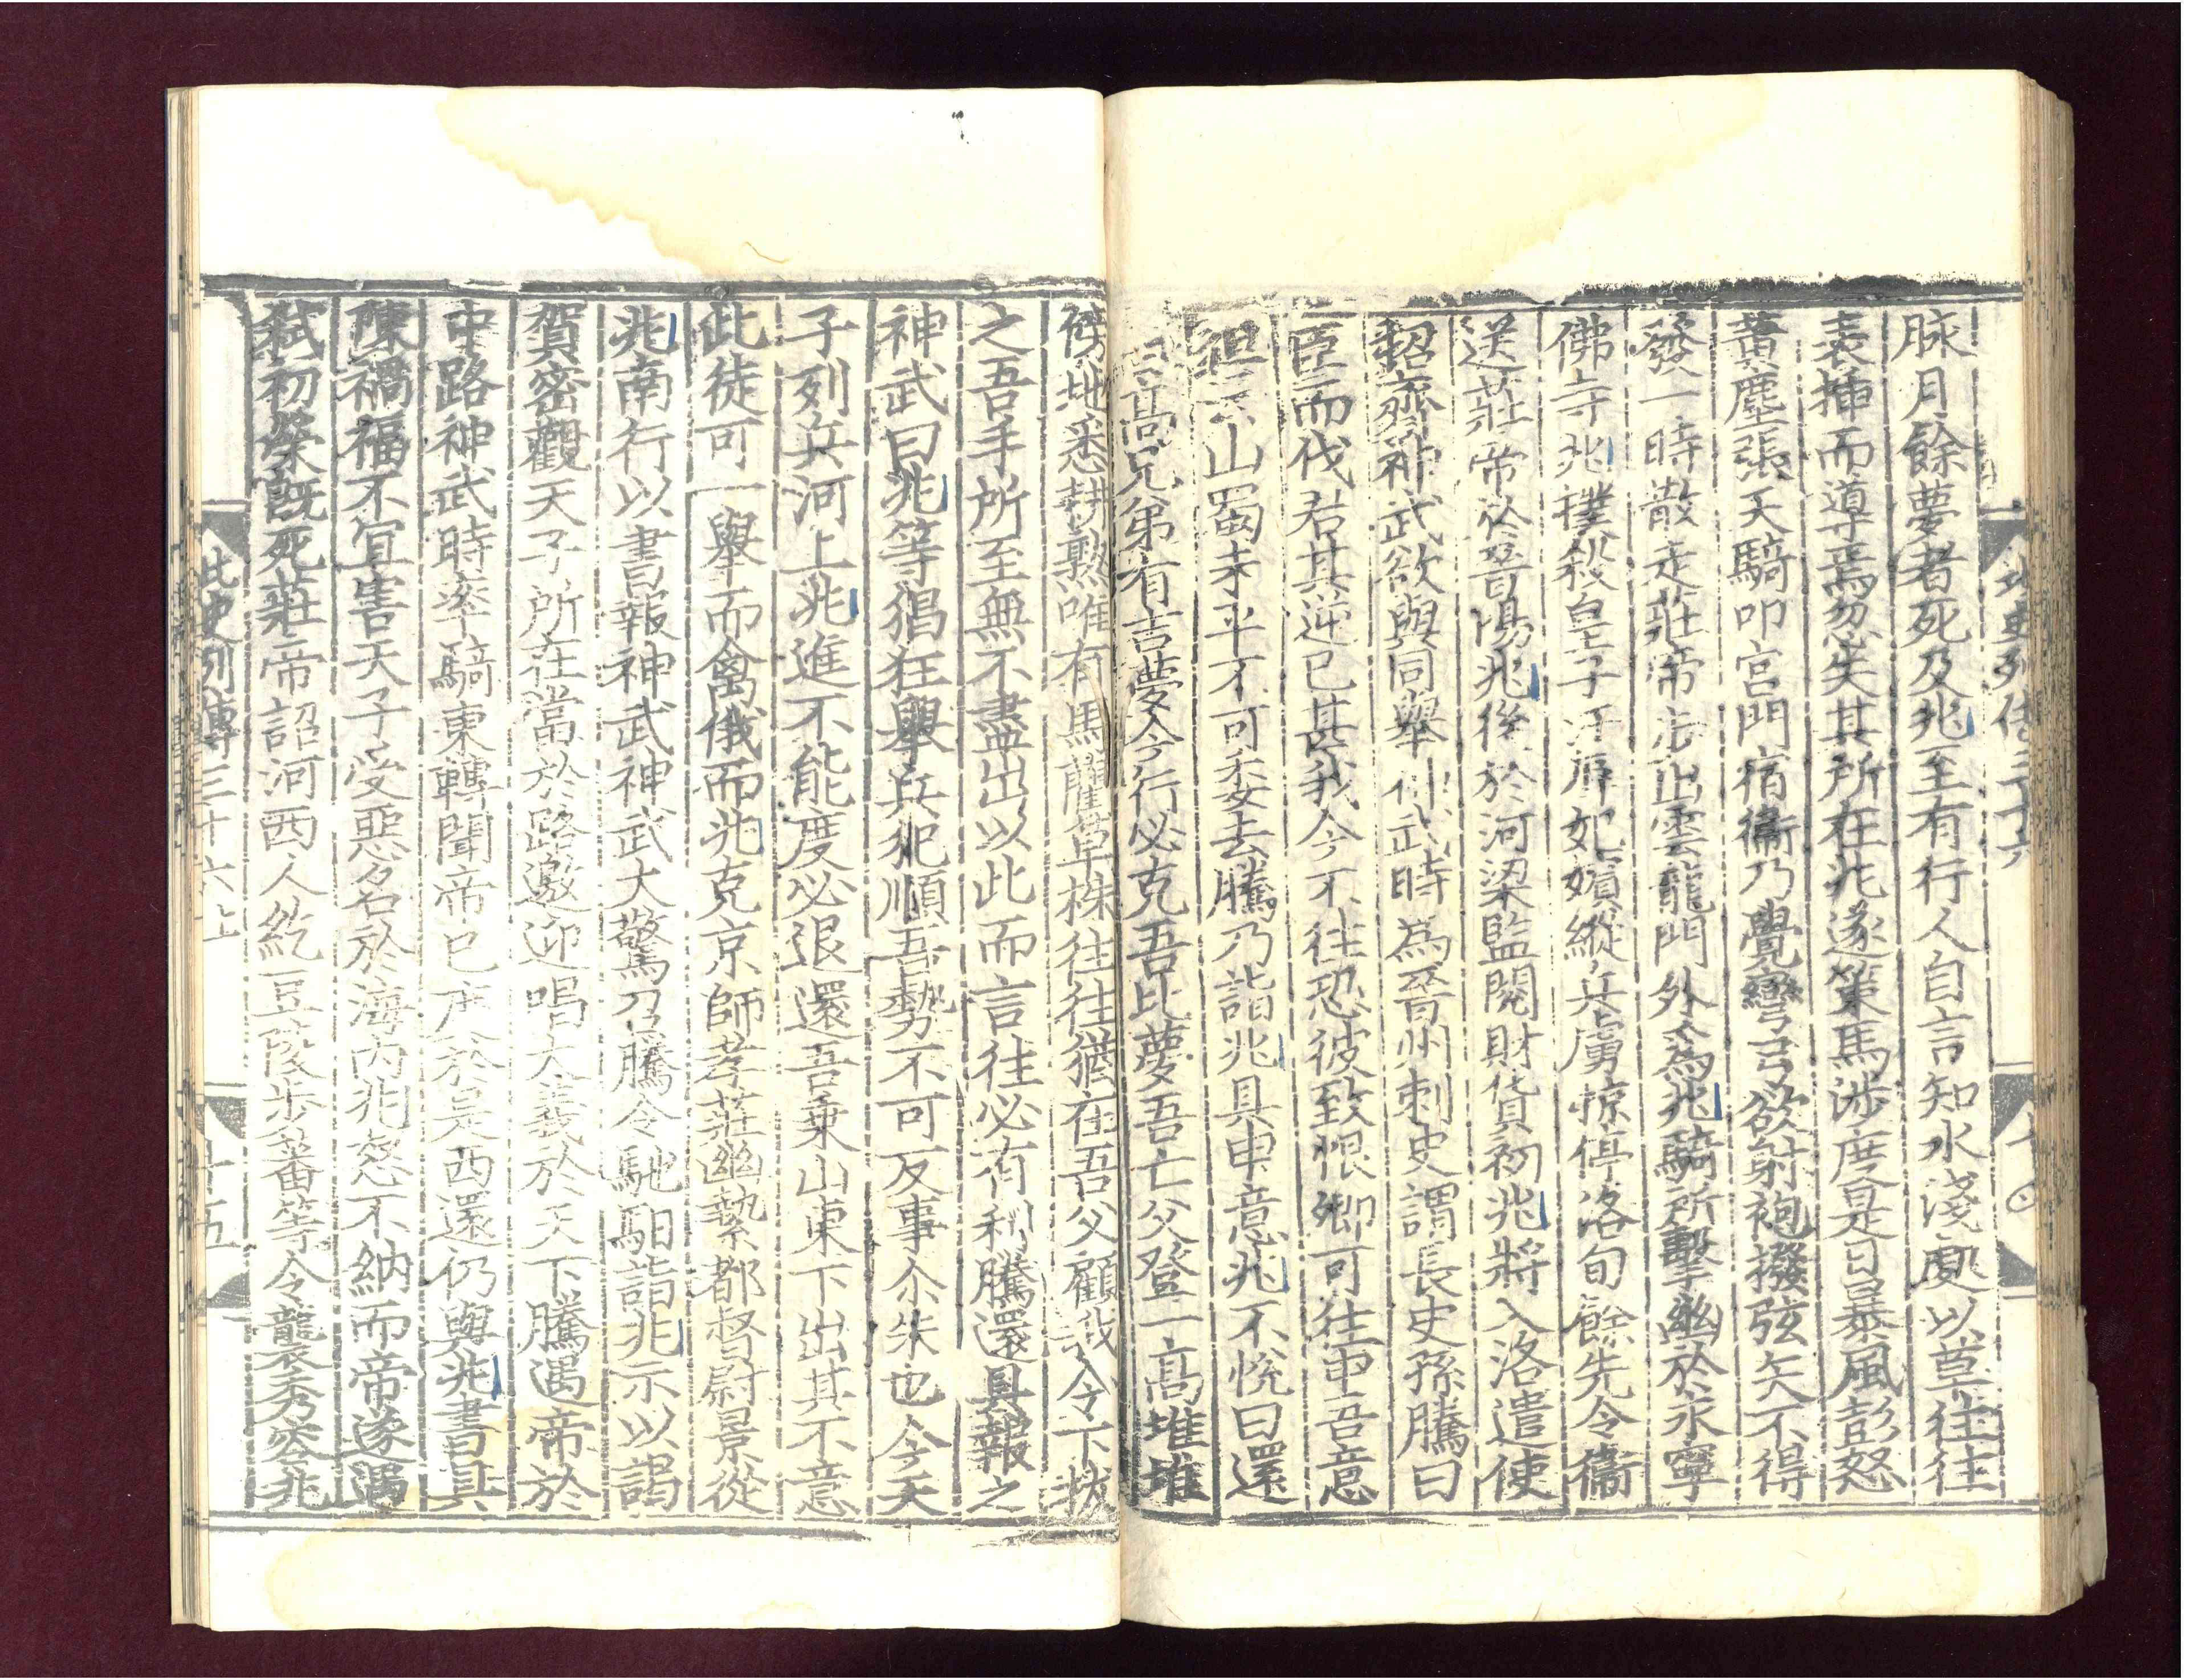 北史列傳三十六
脉月餘夢者死及兆至有行人自言知水淺處以草往往
表揷而導焉忽失其所在兆遂策馬涉度是日暴風鼓怒
黃塵張天騎叩宮門宿衞乃覺彎弓欲射袍撥弦矢不得
發一時散走莊帝步出雲龍門外爲兆騎所擊幽於永寧
佛寺兆撲殺皇子汙辱妃嬪縱兵虜掠停洛旬餘先令衞
送莊帝於晉陽兆後於河梁監閱財貨初兆將入洛遣使
招齊神武欲與同舉神武時爲晉州刺史謂長史孫騰曰
臣而伐君其逆已甚我今不往恐彼致恨卿可往申吾意
但云山蜀未平不可委去騰乃詣兆具申意兆不悅曰還
白高兄弟有吉夢今行必克吾比夢吾亡父登一高堆堆
傍地悉耕熟唯有馬藺草株往往猶在吾父顧我令下拔
之吾手所至無不盡出以此而言往必有利騰還具報之
神武曰兆等猖狂舉兵犯順吾勢不可反事尒朱也今天
子列兵河上兆進不能度必退還吾乗山東下出其不意
此徒可一舉而禽俄而兆克京師孝莊幽縶都督尉景從
兆南行以書報神武神武大驚乃騰令馳馹詣兆示以謁
賀密觀天子所在當於路邀迎唱大義於天下騰遇帝於
中路神武時率騎東轉聞帝已度於是西還仍與兆書具
陳禍福不宜害天子受惡名於海内兆怒不納而帝遂遇
弑初榮旣死莊帝詔河西人紇豆陵步蕃等令襲秀容兆
北史列傳三十六上
十五